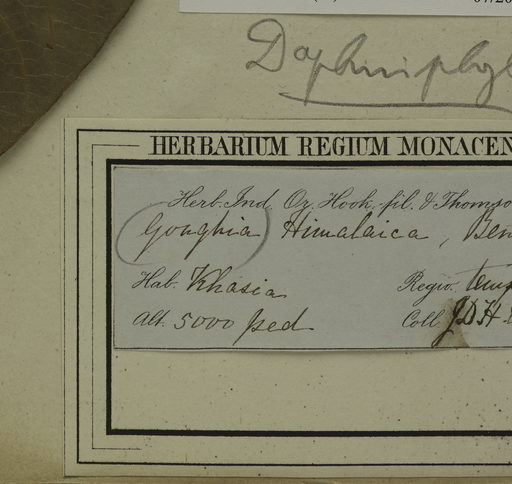 Daphniphyl
HERBARIUM REGIUM MONACEN
Herb. Ind. Or. Hook. fil. & Thomso
Goughia Himalaica, Ben
Hab. Khasia
Regio. temp
Alt. 5000 ped
Coll. J.D.H. &